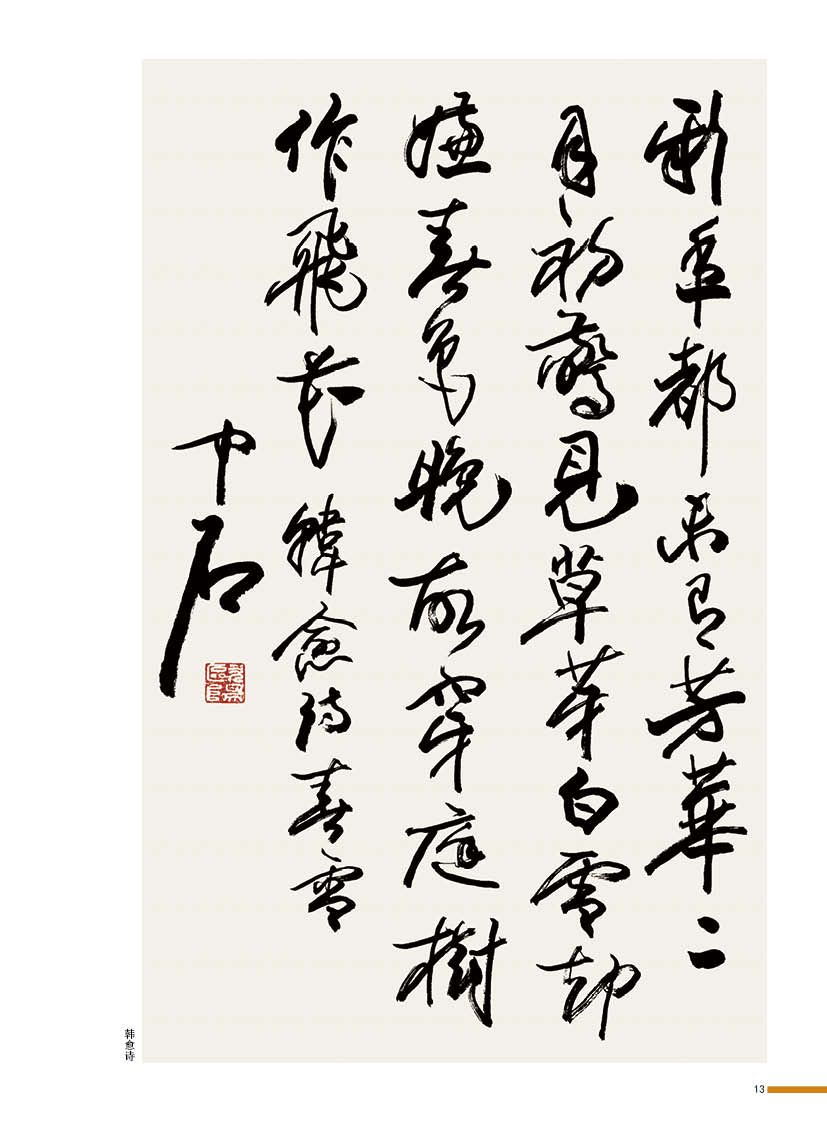 新年都未有芳華二
月初驚見草芽白雪却
嫌春色晚故穿庭樹
作飛花 韓愈詩春雪
中石
韩愈诗
13